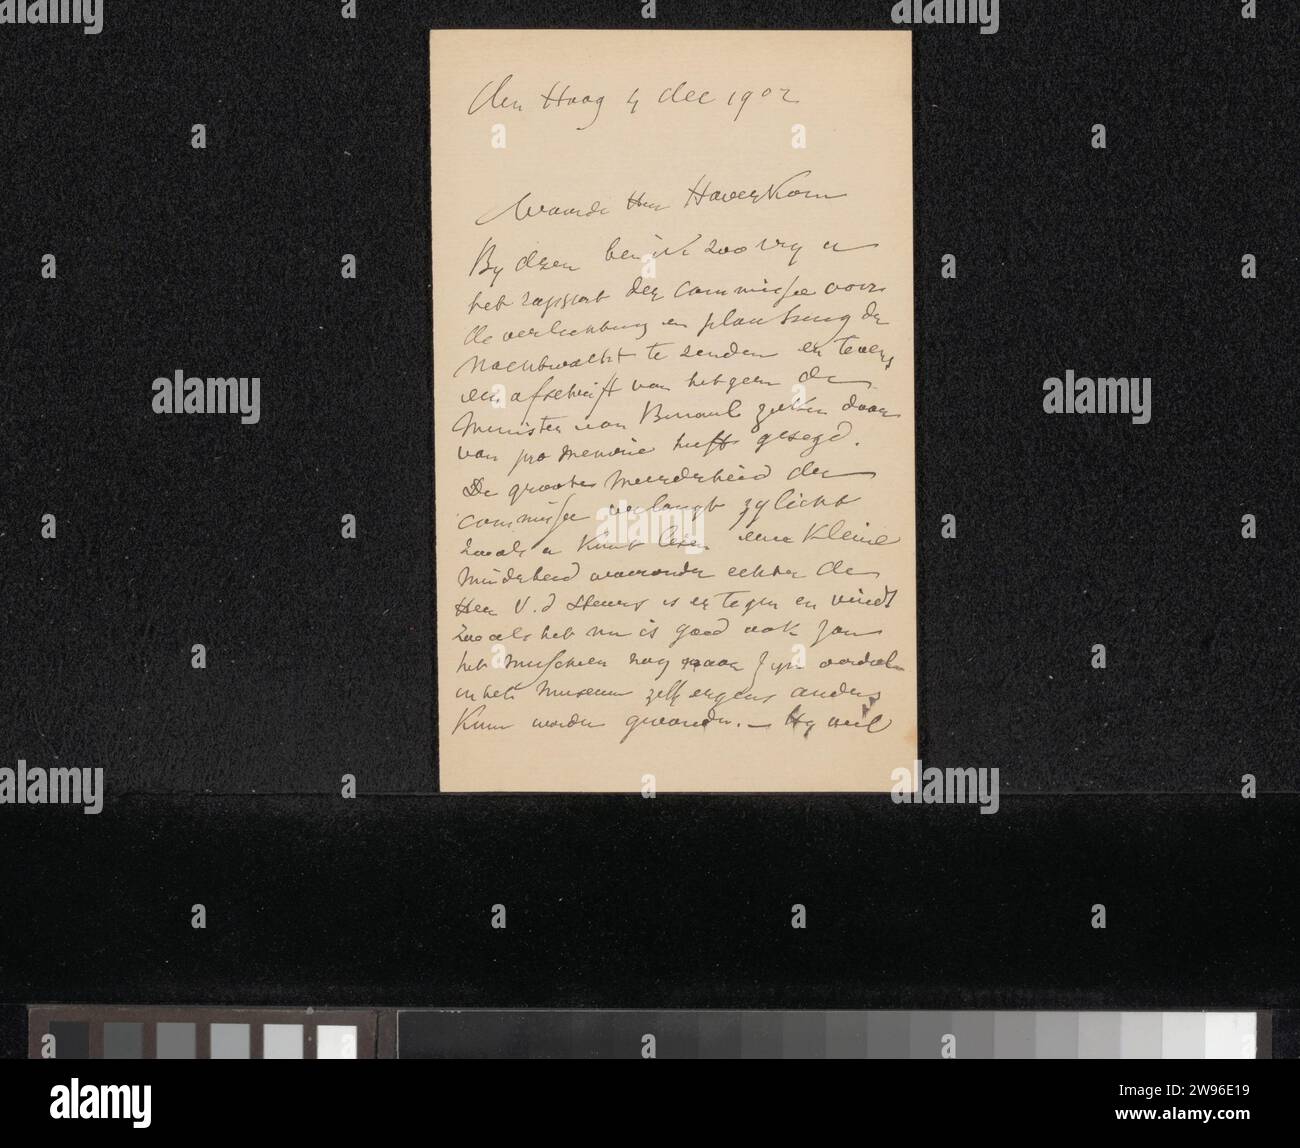 den Haag 4 dec 1902
Waarde Heer Haverkorn
By dezen ben ik zoo vry u
het rapport der commissie voor
de verlichting en plaatsing der
Nachtwacht te zenden en tevens
een afschrift van hetgeen de
Minister van Binnenl zaken daar
van pro memorie heeft gezegd.
De groote Meerderheid der
commissie verlangt zylicht
zooals u kunt lezen eene kleine
Minderheid waaronder echter de
Heer V. d Steurs is er tegen en vindt
zooals het nu is goed ook zou
het misschien nog naar zyn oordeel
in het Museum zelf ergens anders
kunn worden gevonden. — Hy wil
alamy
Image ID: 2W96E19
www.alamy.com